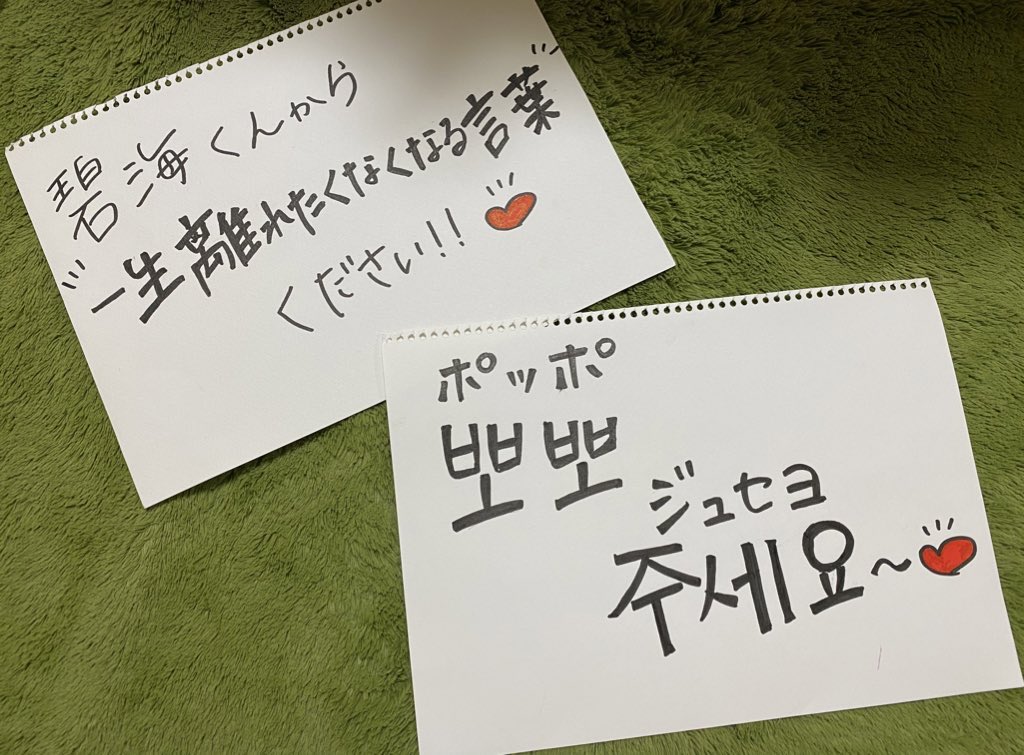 碧海くんから
一生離れたくなくなる言葉
ください!!
ポッポ
뽀뽀
ジュセヨ
주세요~